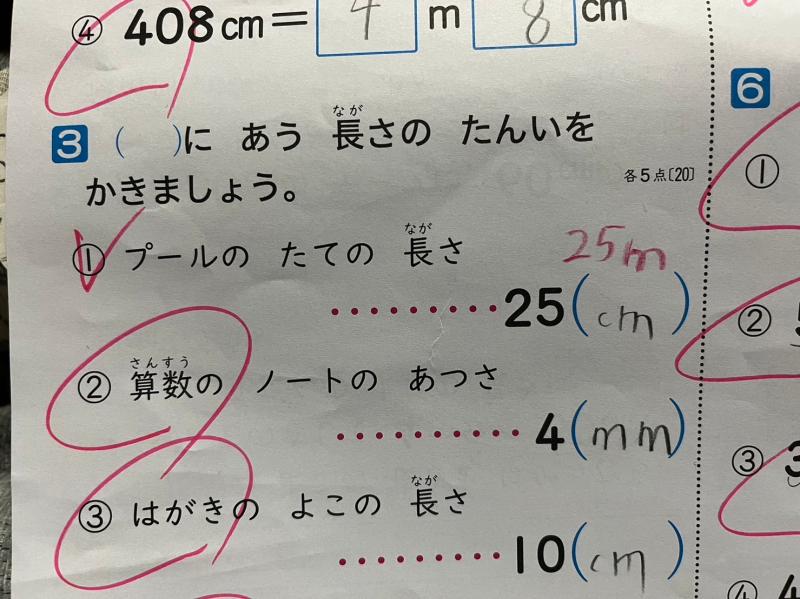 ④ 408cm=4m8cm
3 ( )に あう 長さの たんいを
なが
かきましょう。
各5点〔20〕
① プールの たての 長さ
なが
25m
·········25(cm)
② 算数の ノートの あつさ
さんすう
·········4(mm)
③ はがきの よこの 長さ
なが
·········10(cm)
6
①
②
③
④